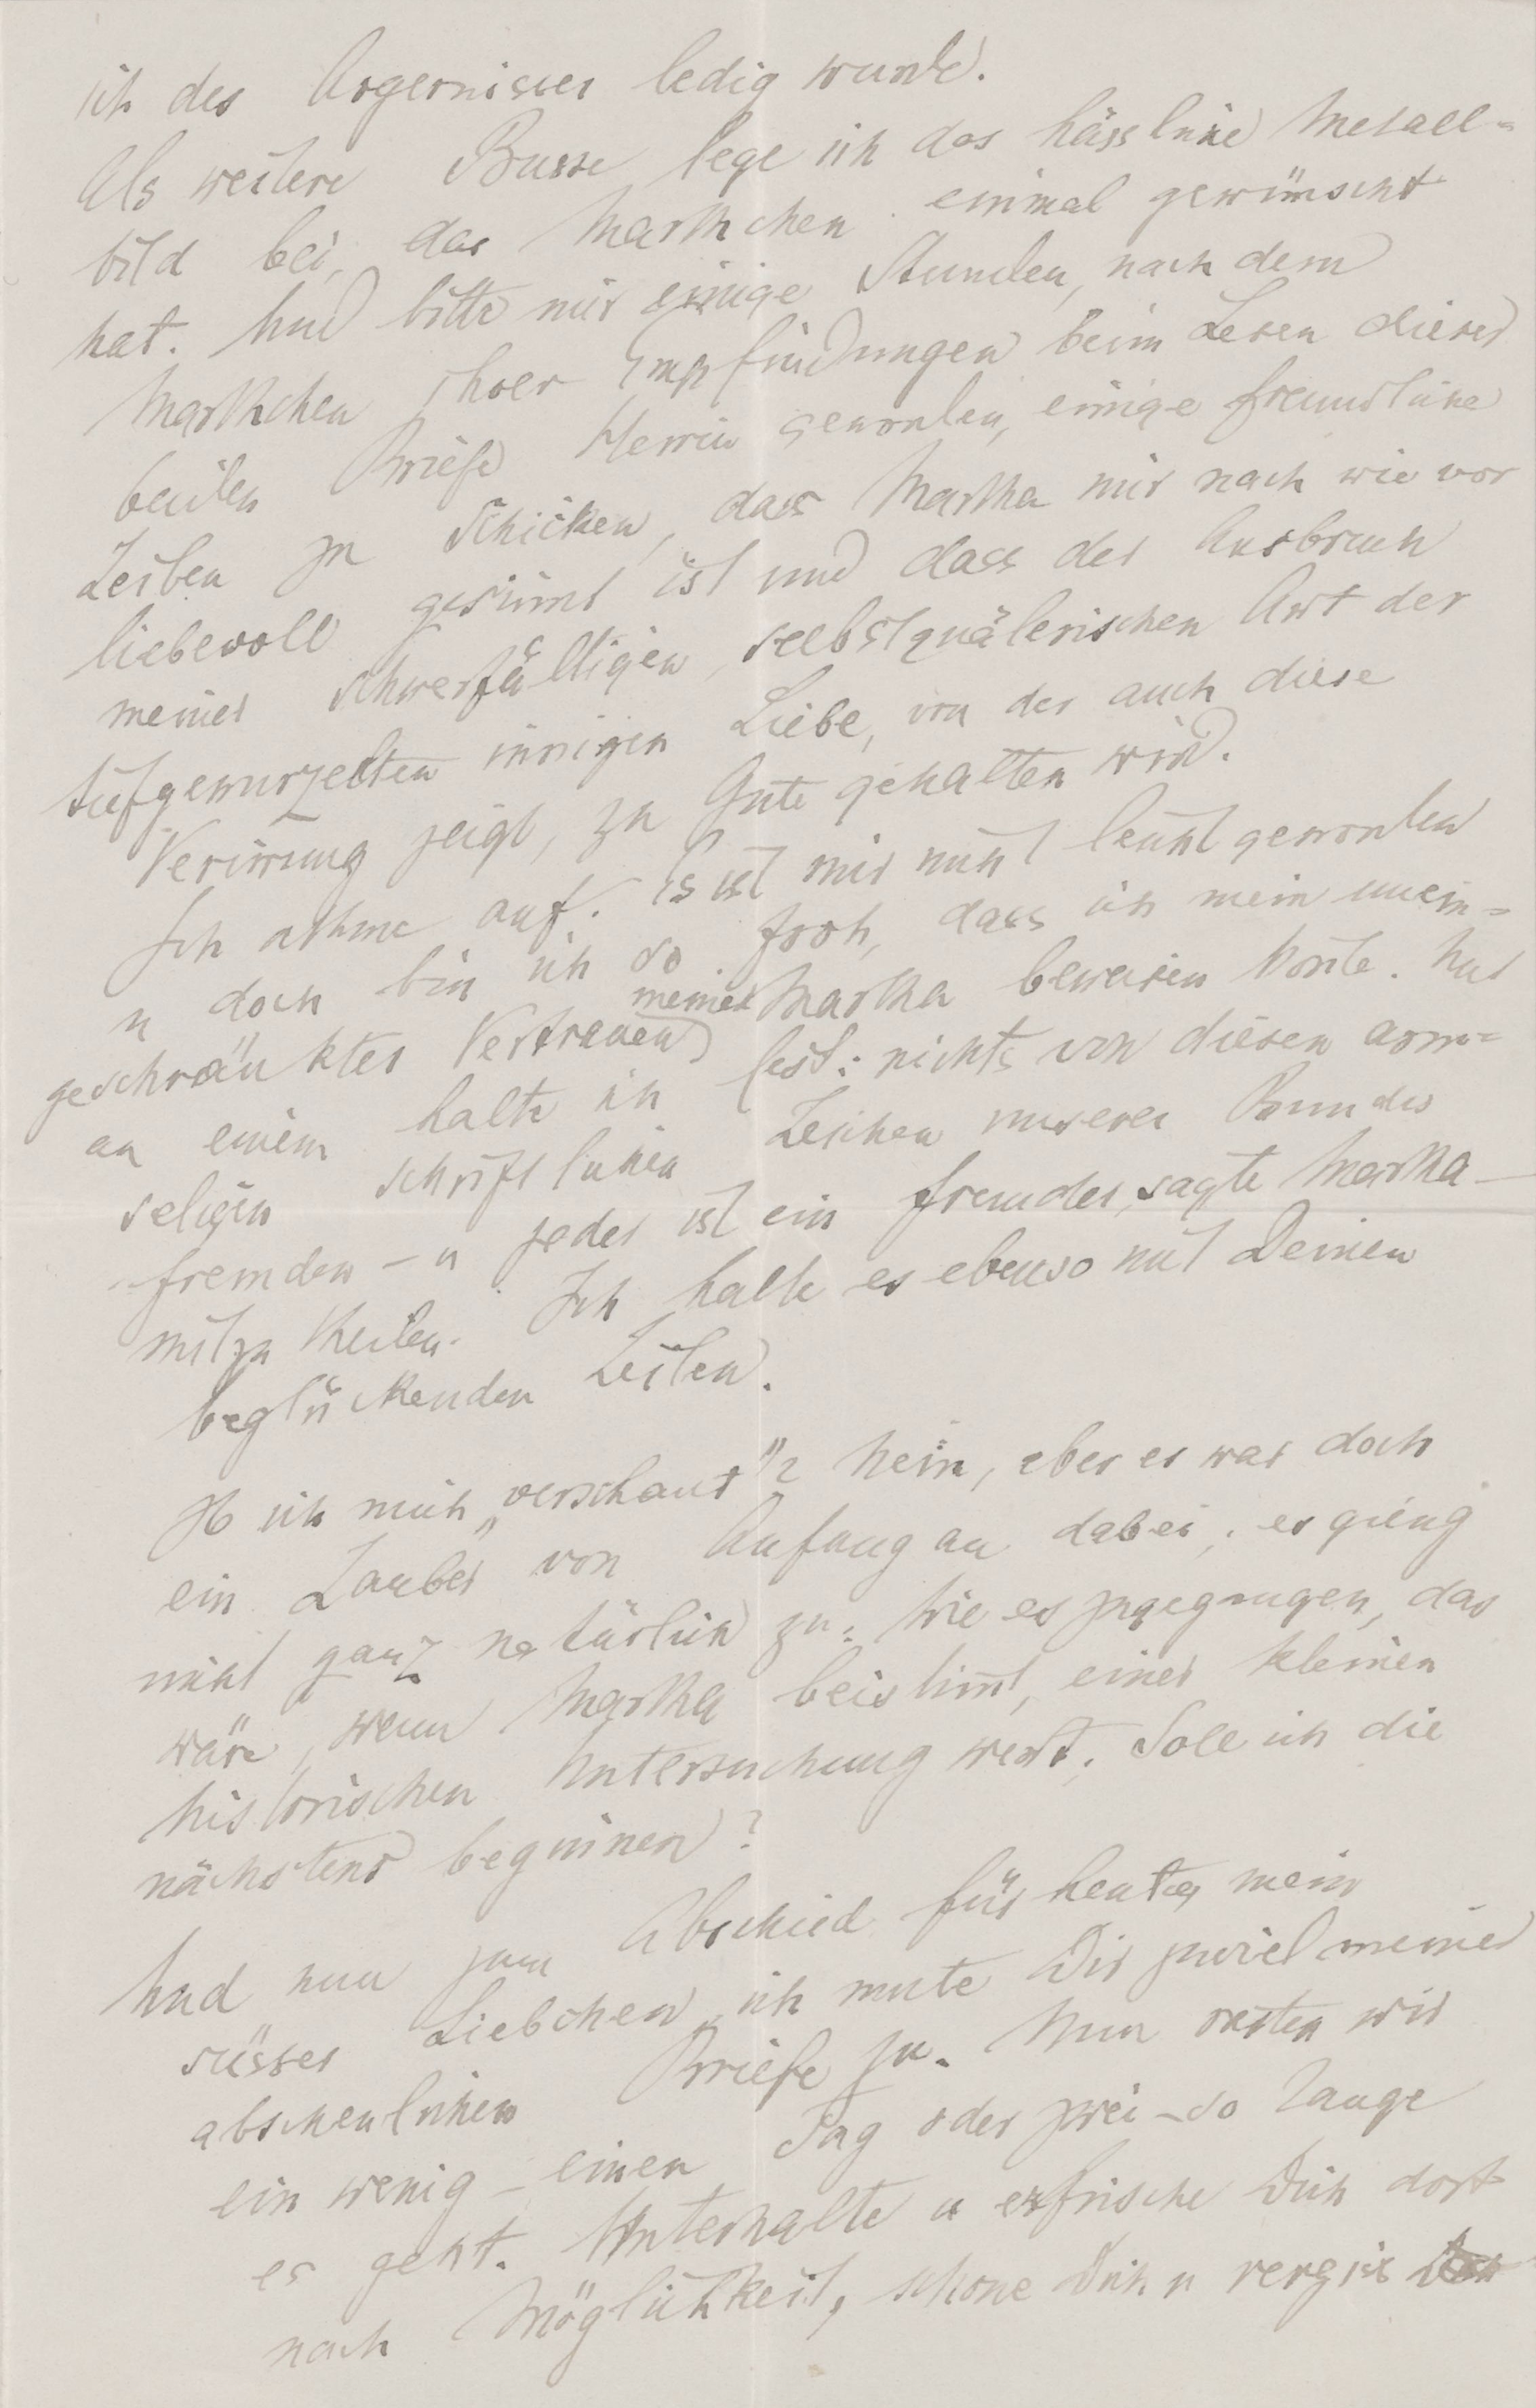 ich des Ärgernisses ledig wurde.
Als weitere Busse lege ich das hässliche Metall=
bild bei, das Marthchen einmal gewünscht
hat. Und bitte mir einige Stunden, nach dem
Marthchen ihrer Empfindungen beim Lesen dieser
beiden Briefe Herrin geworden, einige freundliche
Zeilen zu schicken, dass Martha mir nach wie vor
liebevoll gesinnt ist und dass der Ausbruch
meiner schwerfälligen, selbstquälerischen Art der
tiefgewurzelten innigen Liebe, von der auch diese
Verirrung zeigt, zu Gute gehalten wird.
Ich athme auf. Es ist mir nicht leicht geworden
u doch bin ich so froh, dass ich mein unein=
geschränktes Vertrauen meiner Martha beweisen konte. Nur
an einem halte ich fest: nichts von diesen arm=
seligen schriftlichen Zeichen unseres Bundes
fremden – u jeder ist ein fremder, sagte Martha –
mitzutheilen. Ich halte es ebenso mit Deinen
beglückenden Zeilen.
Ob ich mich „verschaut"? Nein, aber es war doch
ein Zauber von Anfang an dabei, es gieng
nicht ganz natürlich zu. Wie es zugegangen, das
wäre, wenn Martha beistimt, einer kleinen
historischen Untersuchung wert. Soll ich die
nächstens beginnen?
Und nun zum Abschied für heute, mein
süsses Liebchen, ich mute Dir zuviel meiner
abscheulichen Briefe zu. Nun rasten wir
ein wenig – einen Tag oder zwei – so lange
es geht. Unterhalte u erfrische Dich dort
nach Möglichkeit, schone Dich u vergis